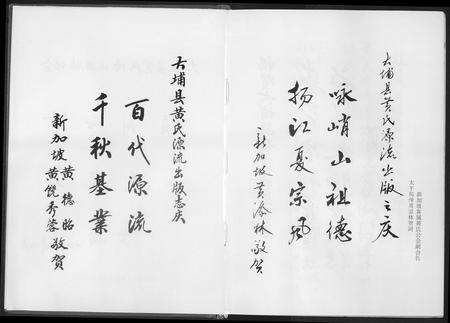 大埔县黄氏源流出版之庆
咏峭山祖德
扬江夏宗风
新加坡黄添林敬贺
新加坡客属黄氏公会副会长
太平局绅黄添林贺词
大埔县黄氏源流出版志庆
百代源流
千秋基業
新加坡黄德昭
黄饶秀蓉敬賀